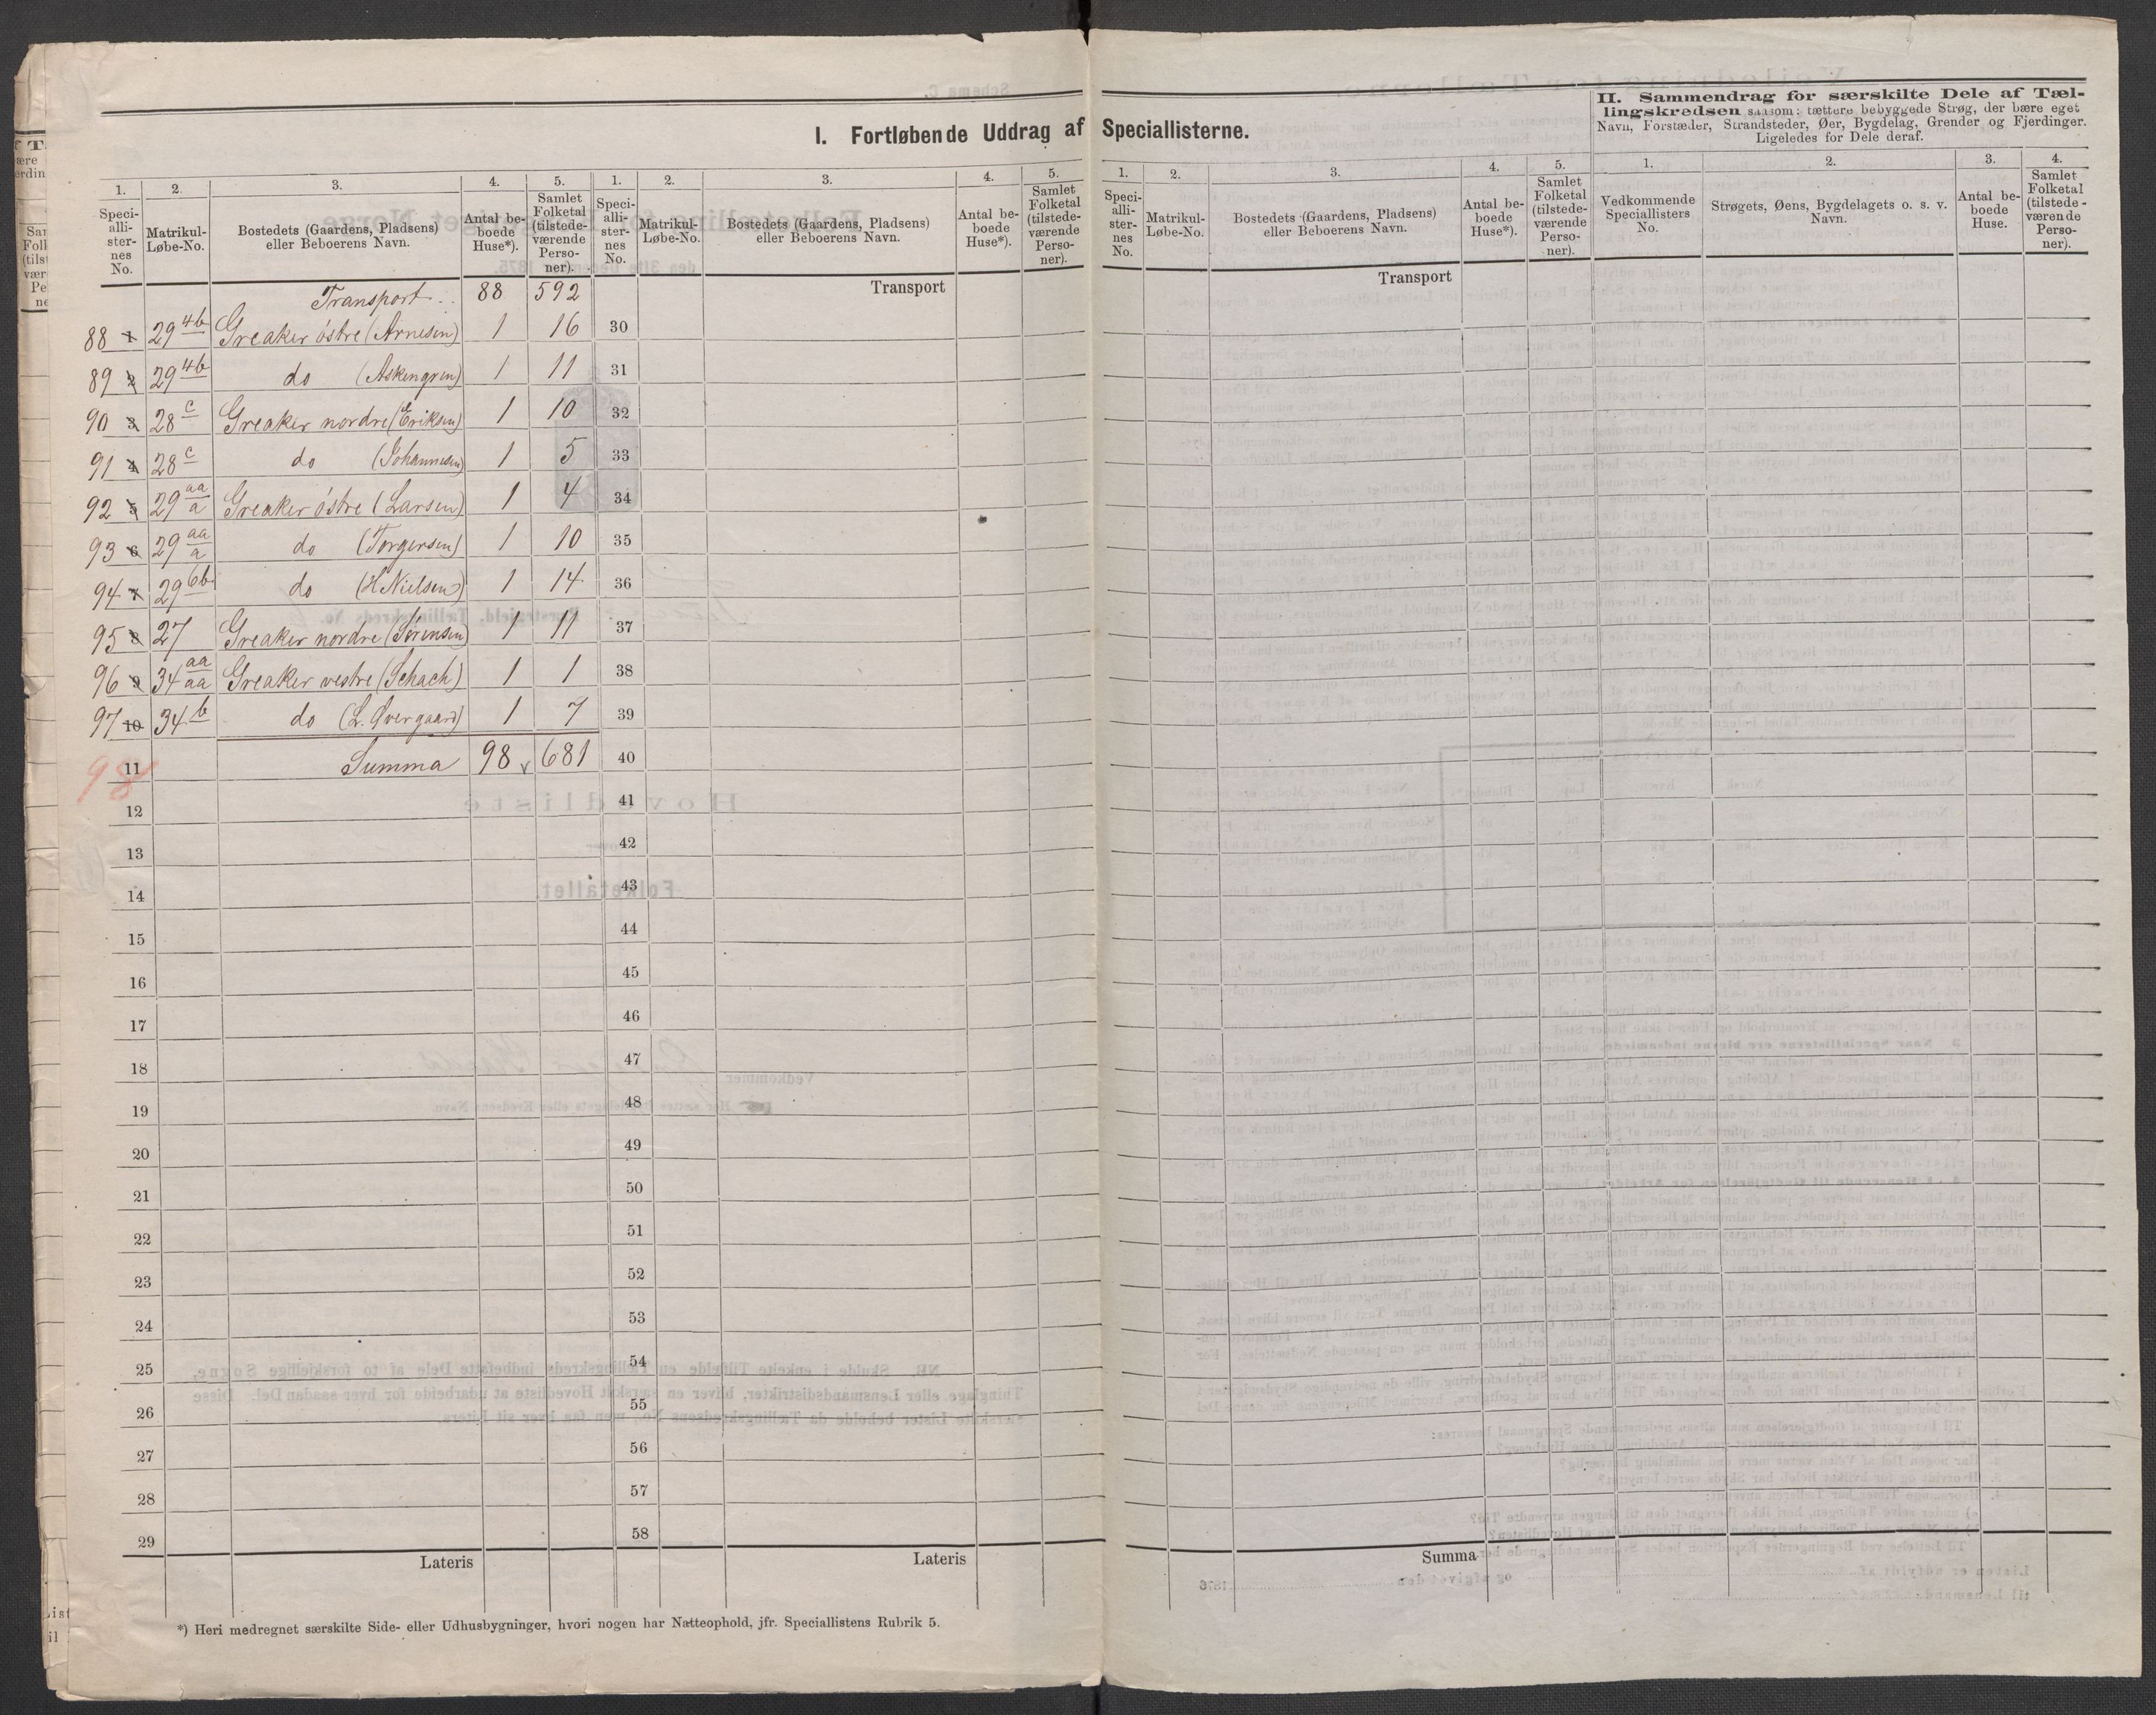 I. Fortløbende Uddrag af Speciallisterne.
II. Sammendrag for særskilte Dele af Tæl-
lingskredsen saasom: tættere bebyggede Strøg, der bære eget
Navn, Forstæder, Strandsteder, Øer, Bygdelag, Grender og Fjerdinger.
Ligeledes for Dele deraf.
1. 2. 3. 4. 5. 1. 2. 3. 4. 5. 1. 2. 3. 4. 5. 1. 2. 3. 4.
Speci-
alli-
ster-
nes
No.
Matrikul-
Løbe-No.
Bostedets (Gaardens, Pladsens)
eller Beboerens Navn.
Antal be-
boede
Huse*).
Samlet
Folketal
(tilstede-
værende
Perso-
ner).
Speci-
alli-
ster-
nes
No.
Matrikul-
Løbe-No.
Bostedets (Gaardens, Pladsens)
eller Beboerens Navn.
Antal be-
boede
Huse*).
Samlet
Folketal
(tilstede-
værende
Perso-
ner).
Speci-
alli-
ster-
nes
No.
Matrikul-
Løbe-No.
Bostedets (Gaardens, Pladsens)
eller Beboerens Navn.
Antal be-
boede
Huse*).
Samlet
Folketal
(tilstede-
værende
Perso-
ner).
Vedkommende
Speciallisters
No.
Strøgets, Øens, Bygdelagets o. s. v.
Navn.
Antal be-
boede
Huse.
Samlet
Folketal
(tilstede-
værende
Perso-
ner).
Transport .. 88 592 Transport Transport
88 1 29 4b Greaker östre (Arnesen) 1 16 30
89 2 29 4b do (Askengren) 1 11 31
90 3 28 c Greaker nordre (Eriksen) 1 10 32
91 4 28 c do (Johannesen) 1 5 33
92 5 29 aa a Greaker östre (Larsen) 1 4 34
93 6 29 aa a do (Torgersen) 1 10 35
94 7 29 6b do (H Nielsen) 1 14 36
95 8 27 Greaker nordre (Sörensen) 1 11 37
96 9 34 aa aa Greaker vestre (Schach) 1 1 38
97 10 34 b do (L. Overgaard) 1 7 39
98 11 Summa 98 681 40
12 41
13 42
14 43
15 44
16 45
17 46
18 47
19 48
20 49
21 50
22 51
23 52
24 53
25 54
26 55
27 56
28 57
29 58
Lateris Lateris Summa
*) Heri medregnet særskilte Side- eller Udhusbygninger, hvori nogen har Natteophold, jfr. Speciallistens Rubrik 5.